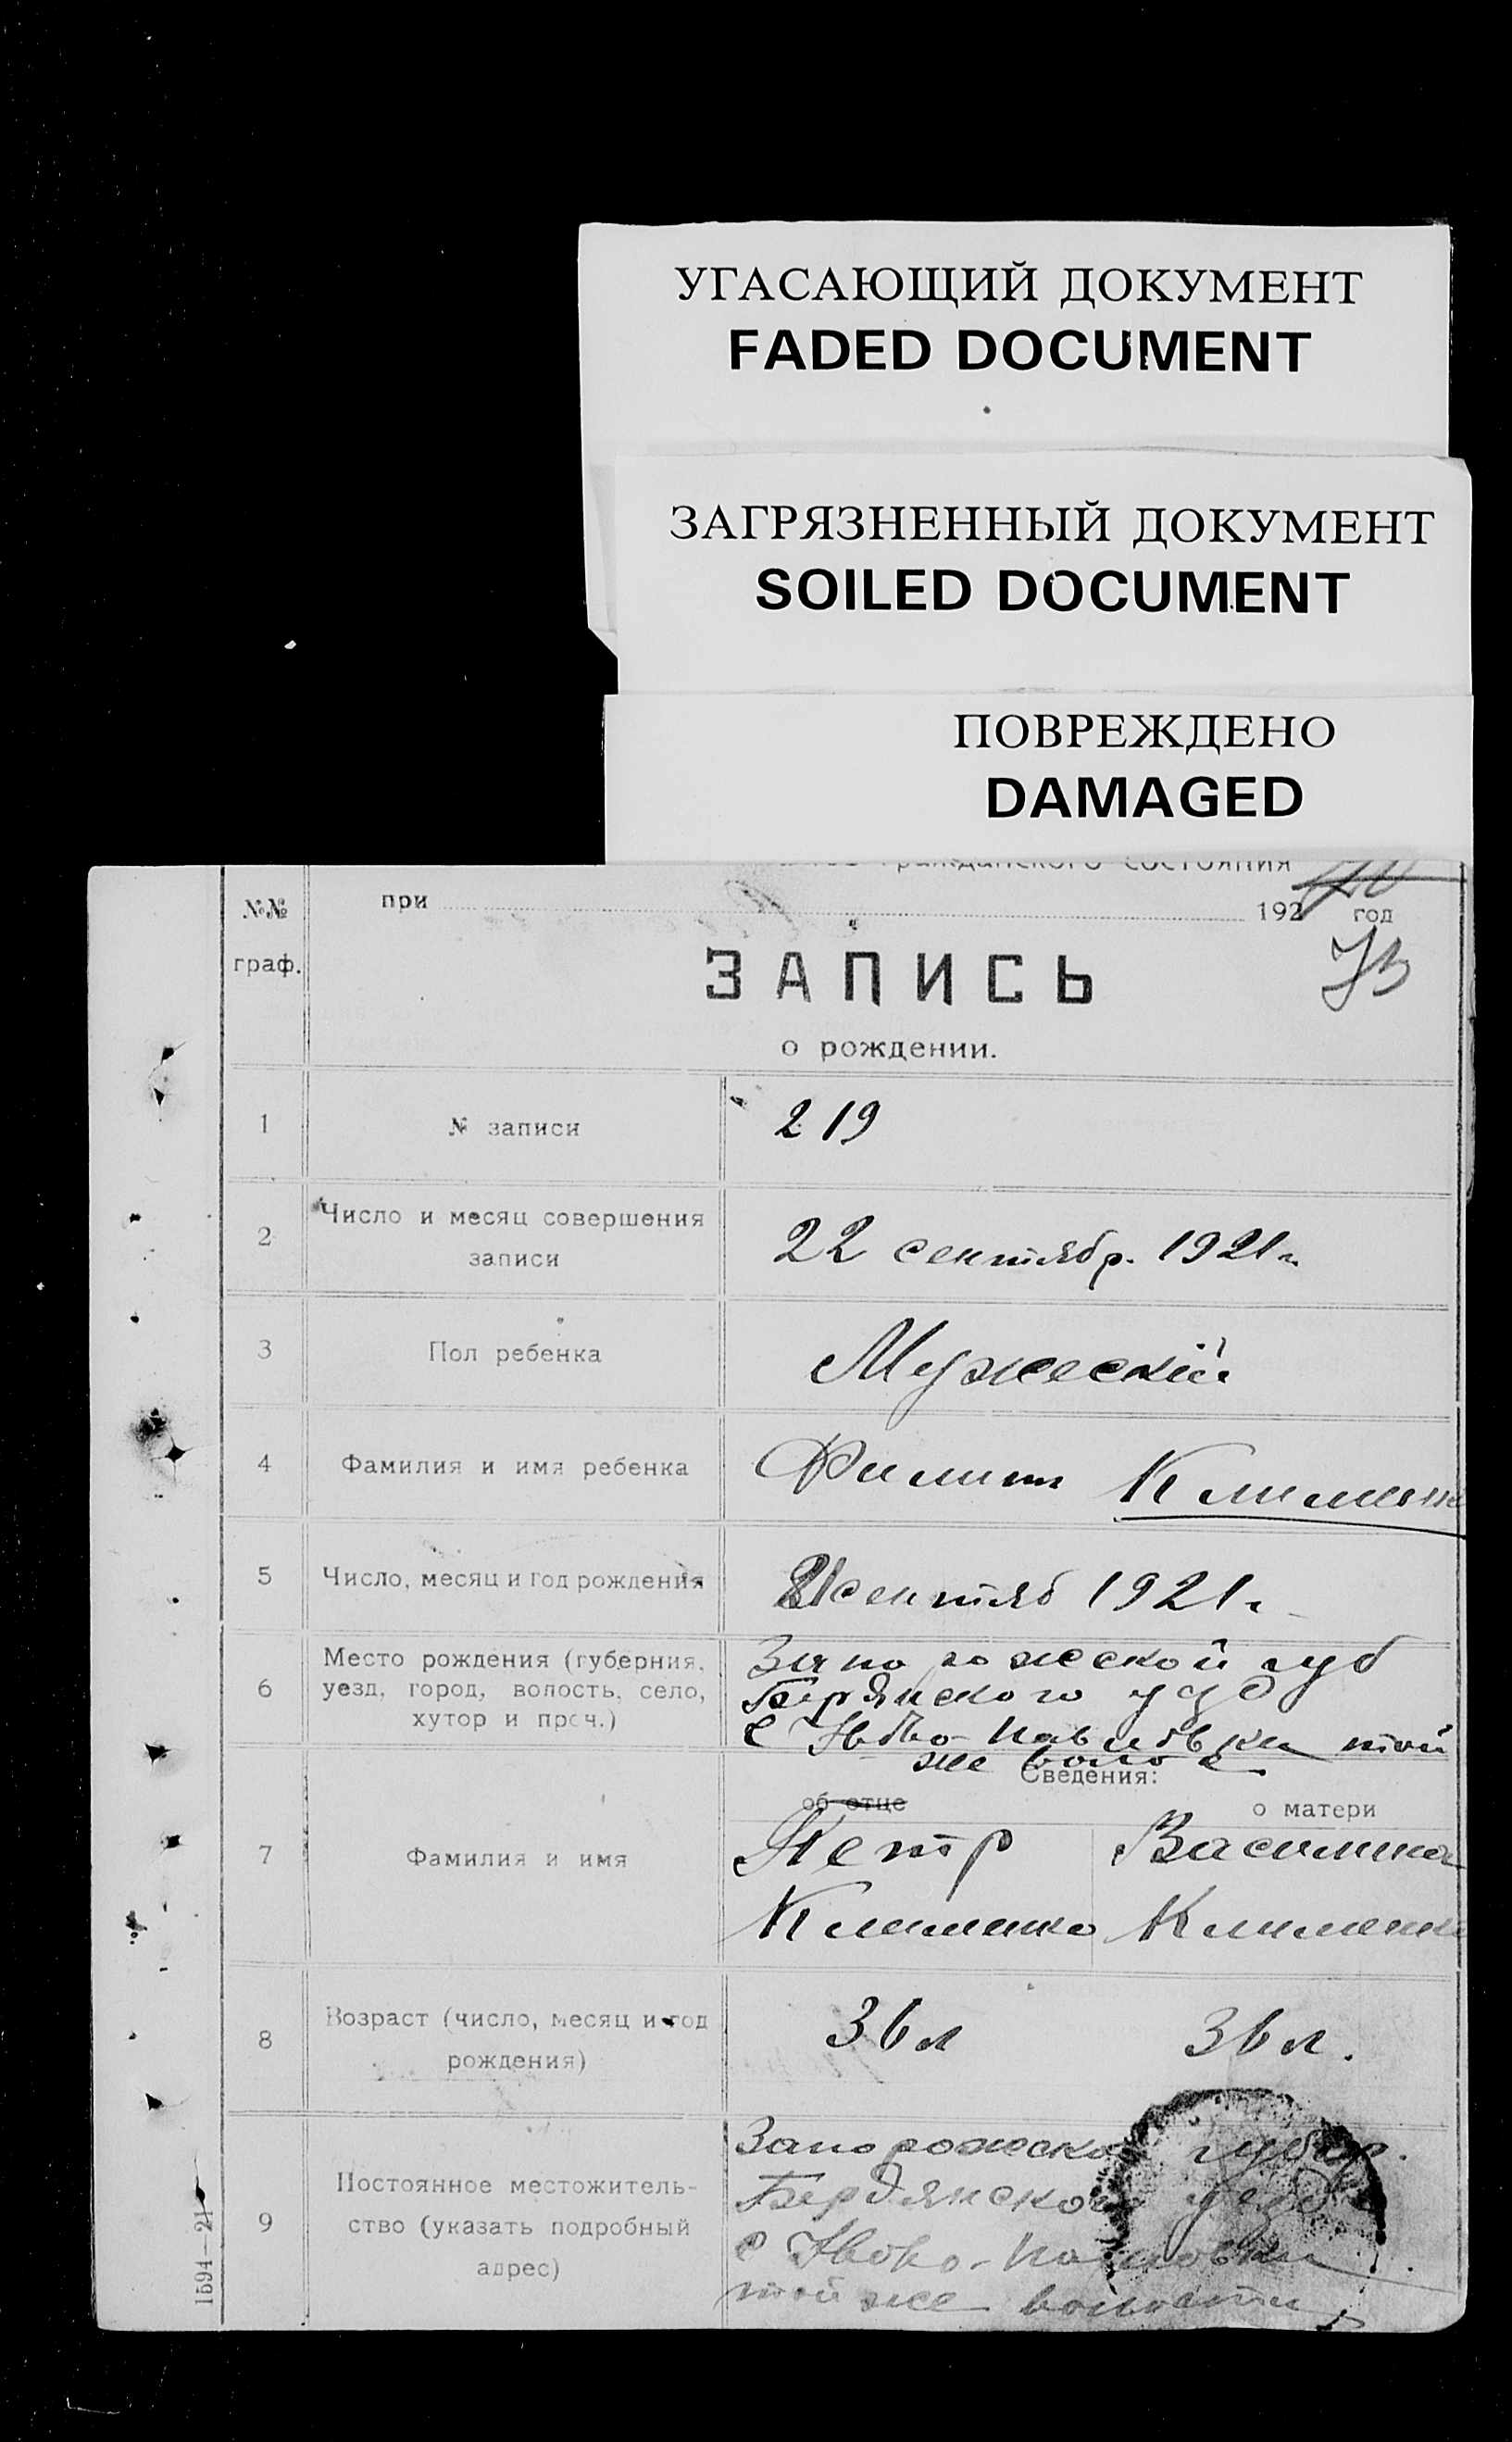 УГАСАЮЩИЙ ДОКУМЕНТ
FADED DOCUMENT
ЗАГРЯЗНЕННЫЙ ДОКУМЕНТ
SOILED DOCUMENT
ПОВРЕЖДЕНО
DAMAGED
гражданского состояния
№№ при 192 год
граф.
73
ЗАПИСЬ
о рождении.
1 № записи 219
2 Число и месяц совершения
записи 22 сентябр. 1921 г.
3 Пол ребенка Мужеский
4 Фамилия и имя ребенка Филипп Клименк
5 Число, месяц и год рождения 21 сентяб 1921 г
6 Место рождения (губерния,
уезд, город, волость, село,
хутор и проч.)
Запорожской губ
Бердянского уезд
с Ново-Павловки той
же воло
Сведения:
об отце о матери
7 Фамилия и имя
Петр Василина
Клименко Клименк
8 Возраст (число, месяц и год
рождения) 36 л 36 л.
9 Постоянное местожитель-
ство (указать подробный
адрес)
Запорожской губер.
Бердянского уезда
с Ново-Павловки
той же волости
1594—21